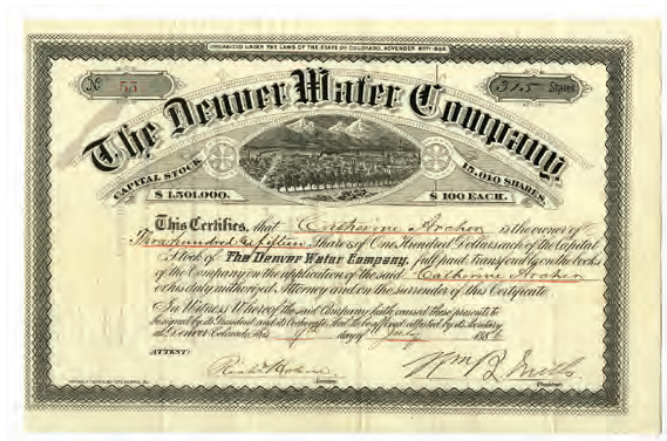 ORGANIZED UNDER THE LAWS OF THE STATE OF COLORADO, NOVEMBER
No 53
315 Shares
The Denver Water Company
CAPITAL STOCK
15.010 SHARES.
$ 1.501.000.
$ 100 EACH.
This Certifies, that Catherine Archer is the owner of
Three hundred & fifteen Shares of One Hundred Dollars each of the Capital
Stock of The Denver Water Company, full paid, transferable on the books
of the Company on the application of the said Catherine Archer
or his duly authorized Attorney and on the surrender of this Certificate.
In Witness Whereof the said Company hath caused these presents to
be signed by its President and its Corporate Seal to be affixed attested by its Secretary
at Denver Colorado this day of July 188
ATTEST:
Secretary.
President.